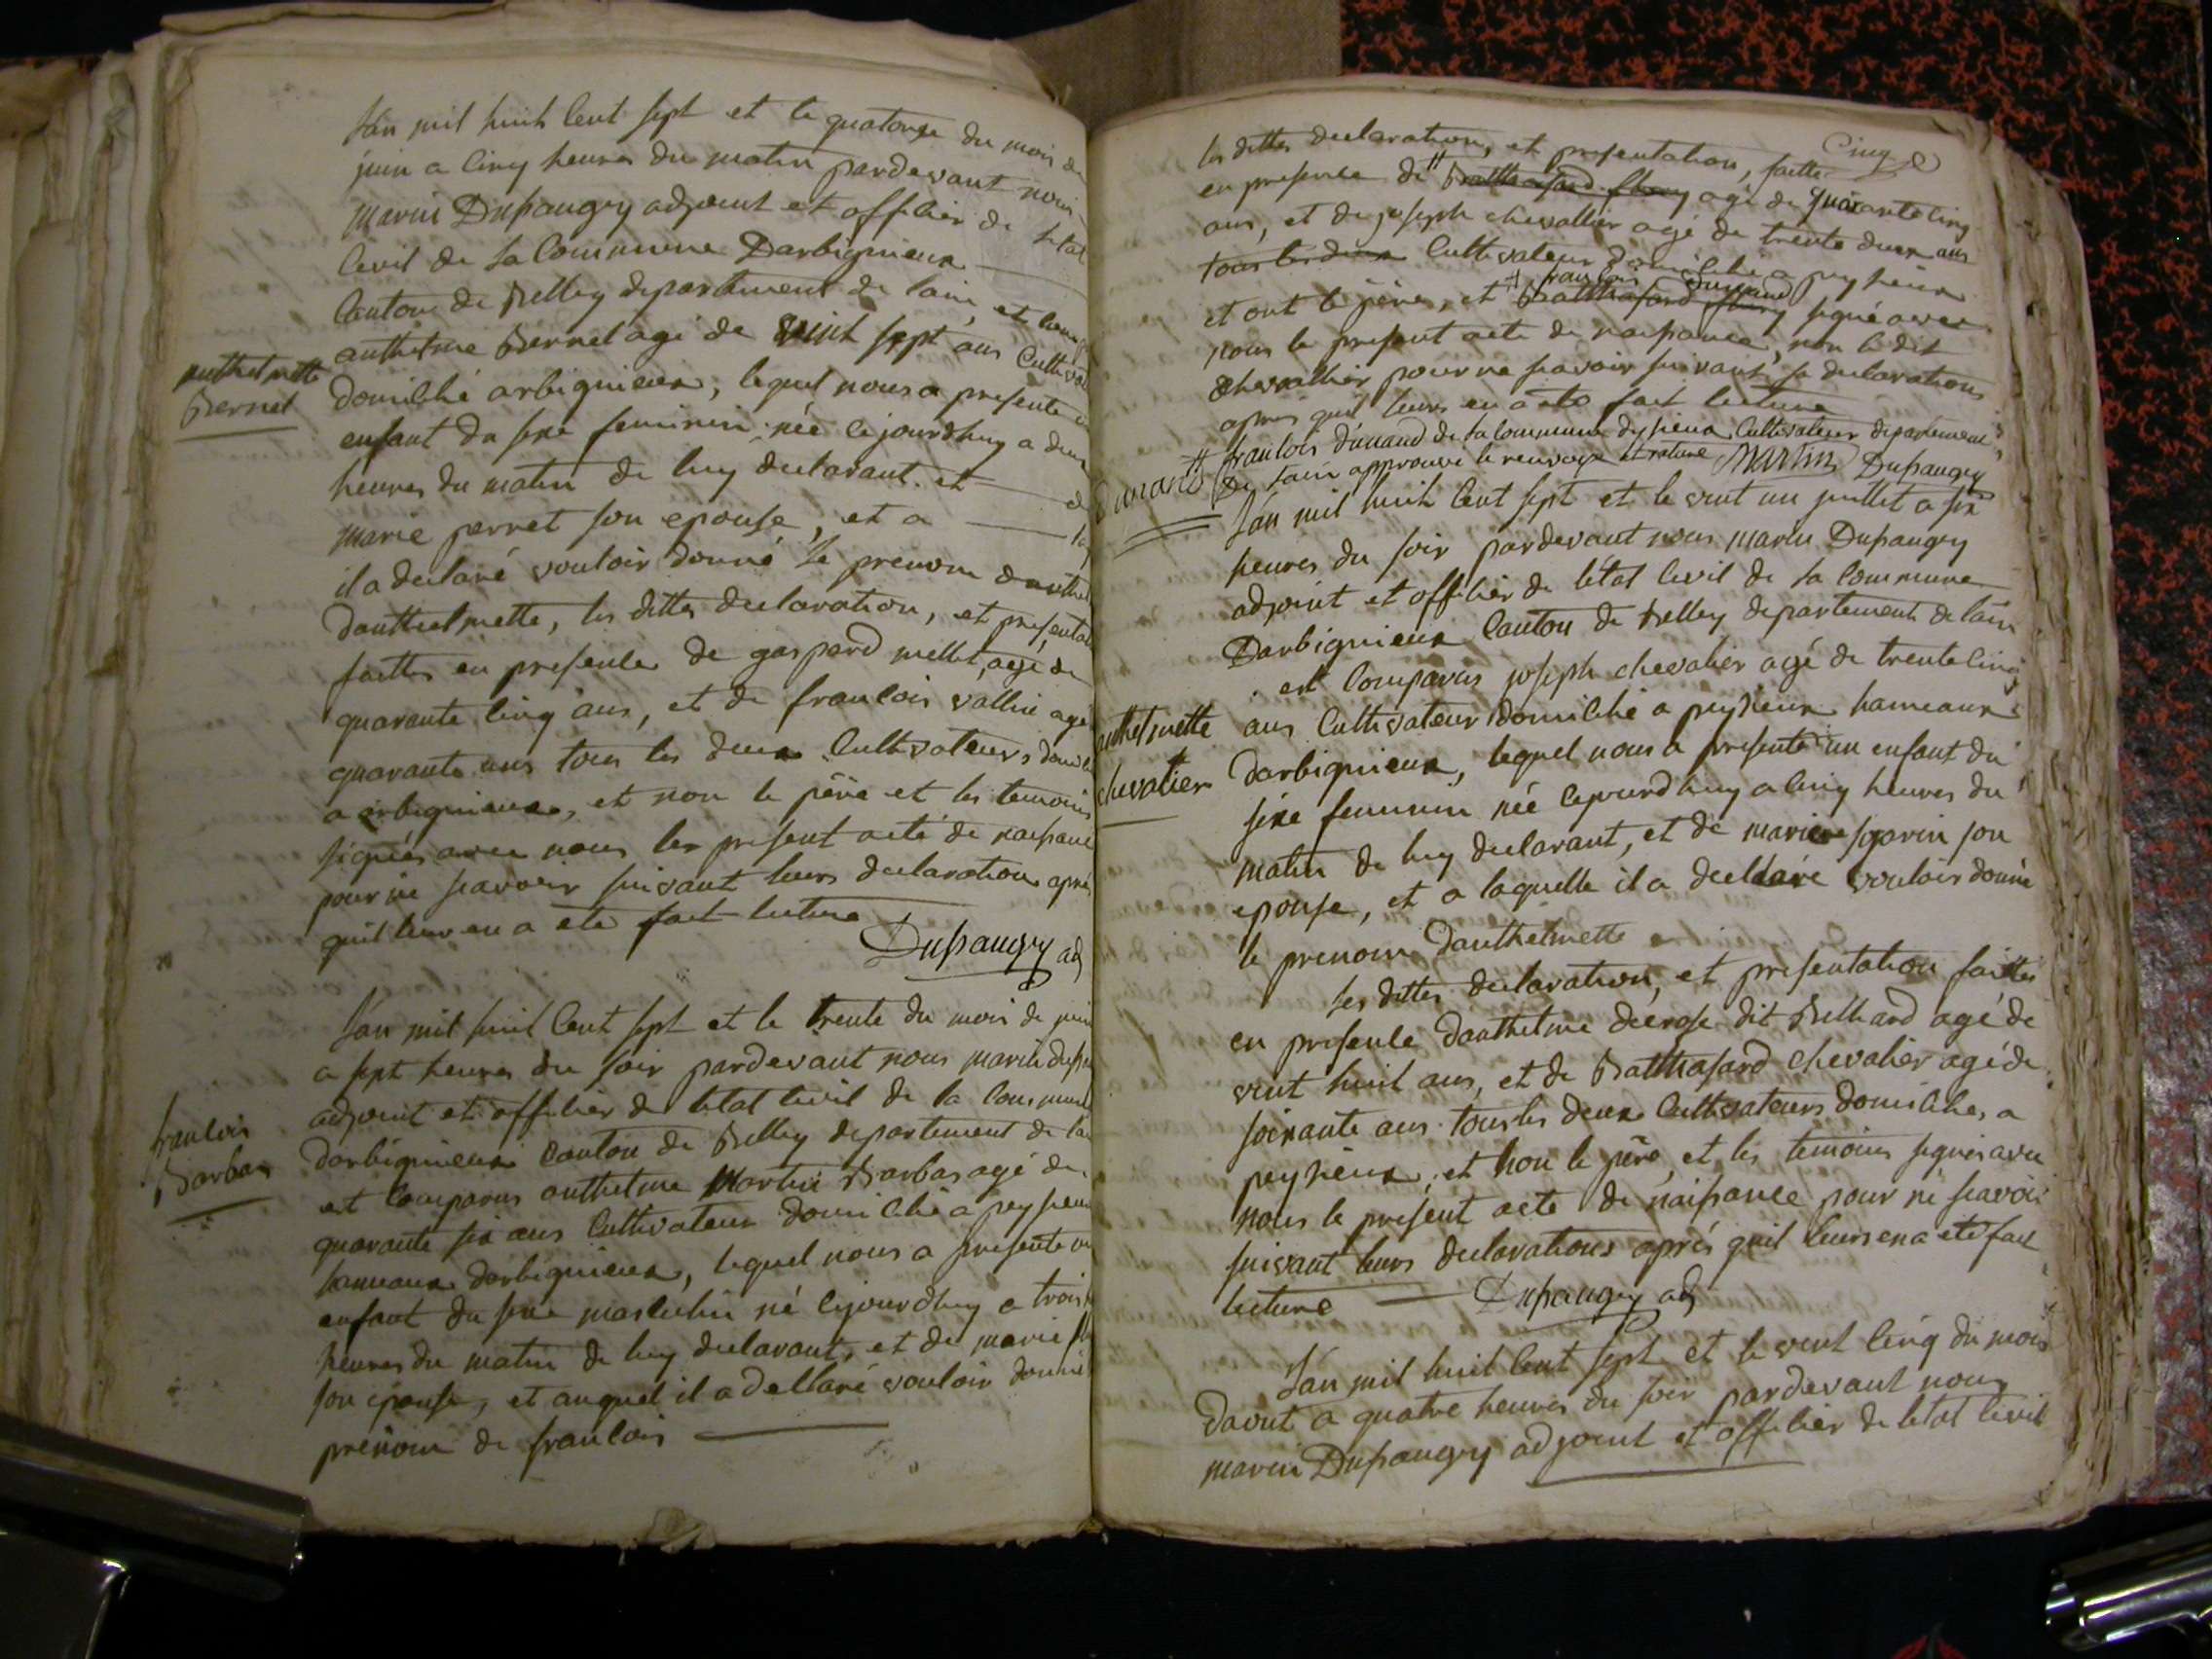 Lan mil huit Cent sept et le quatorze du mois de
juin a Cinq heures du matin pardevant nous
marin Dupaugey adjoint et officier de letat
Civil de la Commune Darbignieux
Canton de Belley departement de lain, et
anthelme Bernel agé de vint sept ans Cultiva
anthelmette
Bernel
domicilié arbignieux, lequel nous a presenté
enfant du sexe feminin née cejourdhuy a deux
heures du matin de luy declarant et
marie perret son epouse, et a
il a declaré vouloir donné le prenom
danthelmette, les dittes declaration, et presentat
faittes en presence de gaspard mellet, agé de
quarante cinq ans, et de francois vallin agé
quarante ans tous les deux Cultivateurs
a arbignieux, et non le père et les temoins
signés avec nous les present acte de naissance
pour ne scavoir suivant leurs declaration aprés
quil leur en a eté fait lecture
Dupaugey adj
Lan mil huit Cent sept et le trente du mois de juin
a sept heures du soir pardevant nous marin
adjoint et officier de letat Civil de la Commune
francois
Barbas
darbignieux Canton de Belley departement de
est Comparus anthelme Martin Barbas agé de
quarante six ans Cultivateur domicilié a peysieux
hameaux darbignieux, lequel nous a presenté un
enfant du sexe masculin né cejourdhuy a trois
heures du matin de luy declarant, et de marie
son epouse, et auquel il a dellaré vouloir donné
prénom de francois
Cinq
les dittes declaration, et presentation, faitte
en presence de # Balthasard fleury agé de quarante cinq
ans, et de joseph chevallier agé de trente deux ans
tous les deux Cultivateur domicilié a peysieux
# francois dunand
et ont le père, et Balthasard fleury signé avec
nous le present acte de naissance, non le dit
chevallier pour ne scavoir suivant sa declaration
apres quil leurs en a eté fait lecture
# francois dunand de la commune dysieux Cultivateur departement
De lain approuvé le renvoye et rature Martin Dupaugey
dunand
Lan mil huit Cent sept et le vint un juillet a six
heures du soir pardevant nous marin Dupaugey
adjoint et officier de létat Civil de la Commune
Darbignieux Canton de Belley departement de lain
est Comparus joseph chevalier agé de trente cinq
anthelmette
chevalier
ans Cultivateur domicilié a peysieux hameaux
darbignieux, lequel nous a presenté un enfant du
sexe feminin née cejourdhuy a cinq heures du
matin de luy declarant, et de marie son
epouse, et a laquelle il a declaré vouloir donné
le prenom danthelmette
les dittes declaration, et presentation faittes
en presence danthelme decrose dit Billiard agé de
vint huit ans, et de Balthasard chevalier agé de
soixante ans tous les deux Cultivateurs domiciliés a
peysieux, et non le père, et les temoins signés avec
nous le present acte de naissance pour ne scavoir
suivant leurs declarations aprés quil leurs en a eté fait
lecture Dupaugey adj
Lan mil huit Cent sept et le vint cinq du mois
daout a quatre heures du soir pardevant nous
marin Dupaugey adjoint et officier de letat Civil